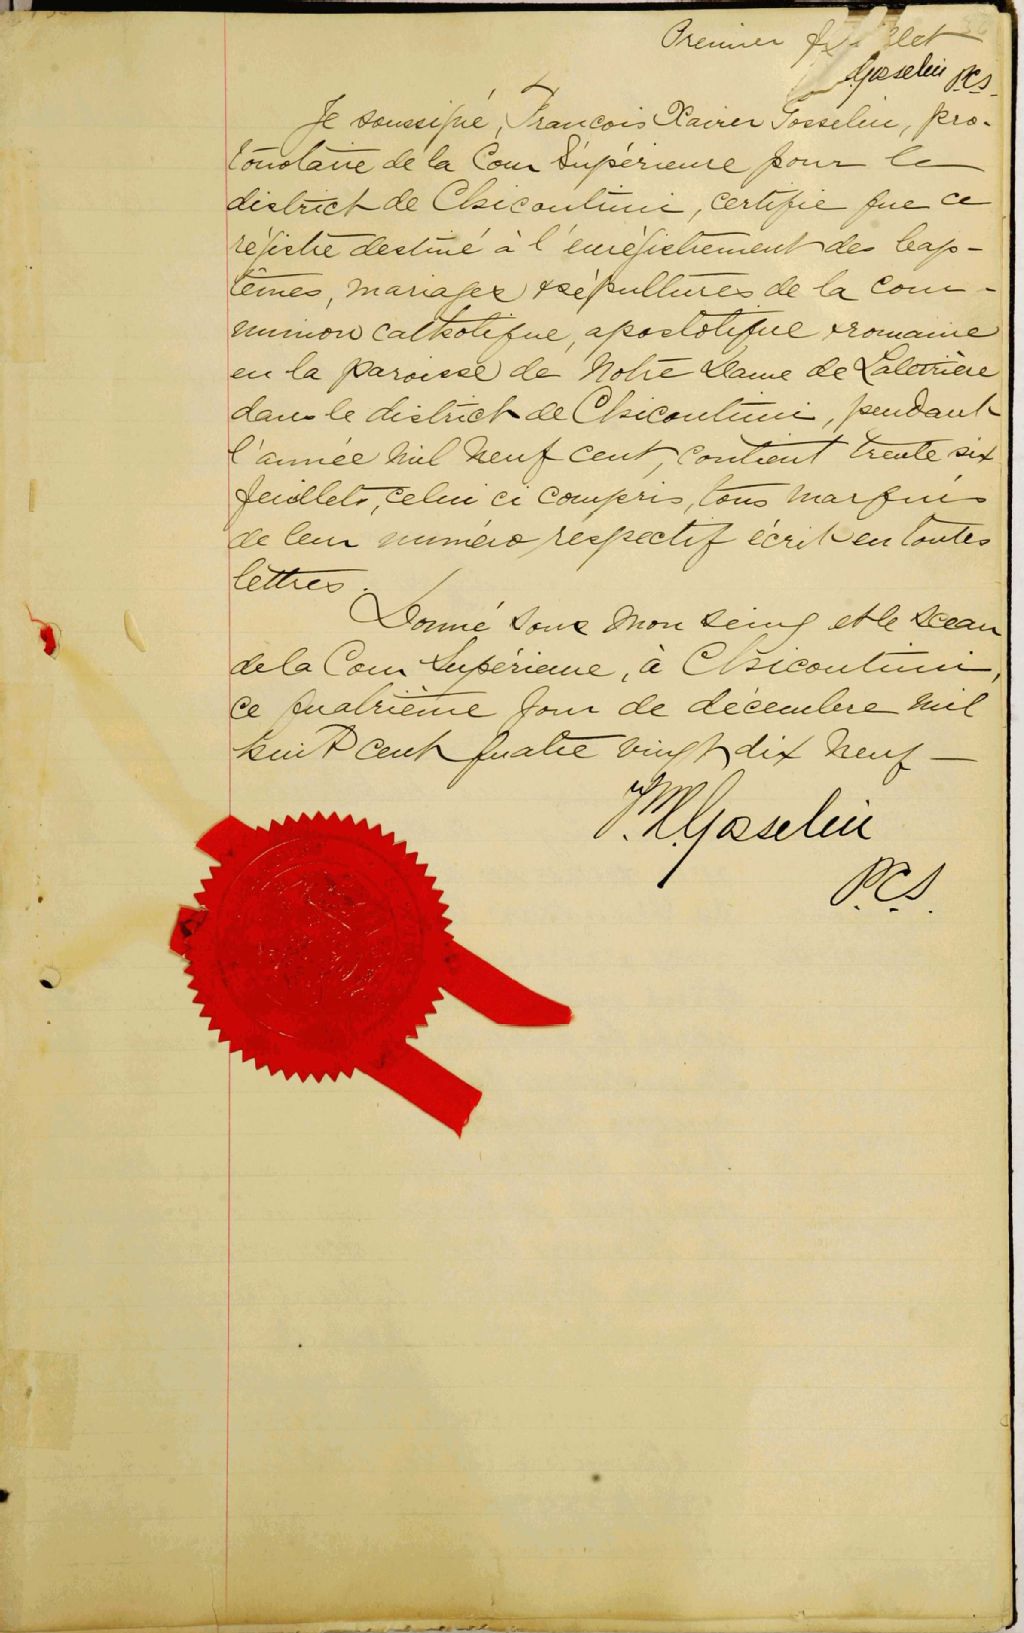 Premier feuillet
Gosselin P.C.S.
Je soussigné, François Xavier Gosselin, pro-
tonotaire de la Cour Supérieure pour le
district de Chicoutimi, certifie que ce
régistre destiné à l'enrégistrement des bap-
têmes, mariages & sépultures de la com-
munion catholique, apostolique & romaine
en la paroisse de Notre Dame de Laterrière
dans le district de Chicoutimi, pendant
l'année mil neuf cent, contient trente six
feuillets, celui ci compris, tous marqués
de leur numéro respectif écrit en toutes
lettres.
Donné sous mon seing et le sceau
de la Cour Supérieure, à Chicoutimi,
ce quatrième jour de décembre mil
huit cent quatre vingt dix neuf —
F.X. Gosselin
P.C.S.